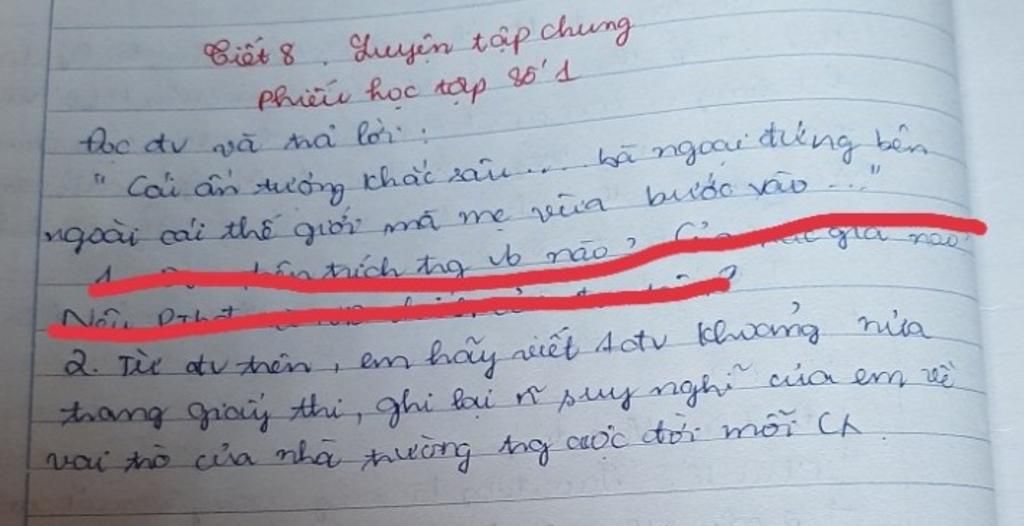 Tiết 8. Luyện tập chung
Phiếu học tập số 1
Đọc đv và trả lời:
" Cái ấn tượng khắc sâu... bà ngoại đứng bên
ngoài cái thế giới mà mẹ vừa bước vào..."
trích tng vb nào? Của tác giả nào?
Nêu Ptbđ
2. Từ đv trên, em hãy viết 1 đv khoảng nửa
trang giấy thi, ghi lại n~ suy nghĩ của em về
vai trò của nhà trường tng cuộc đời mỗi Ch